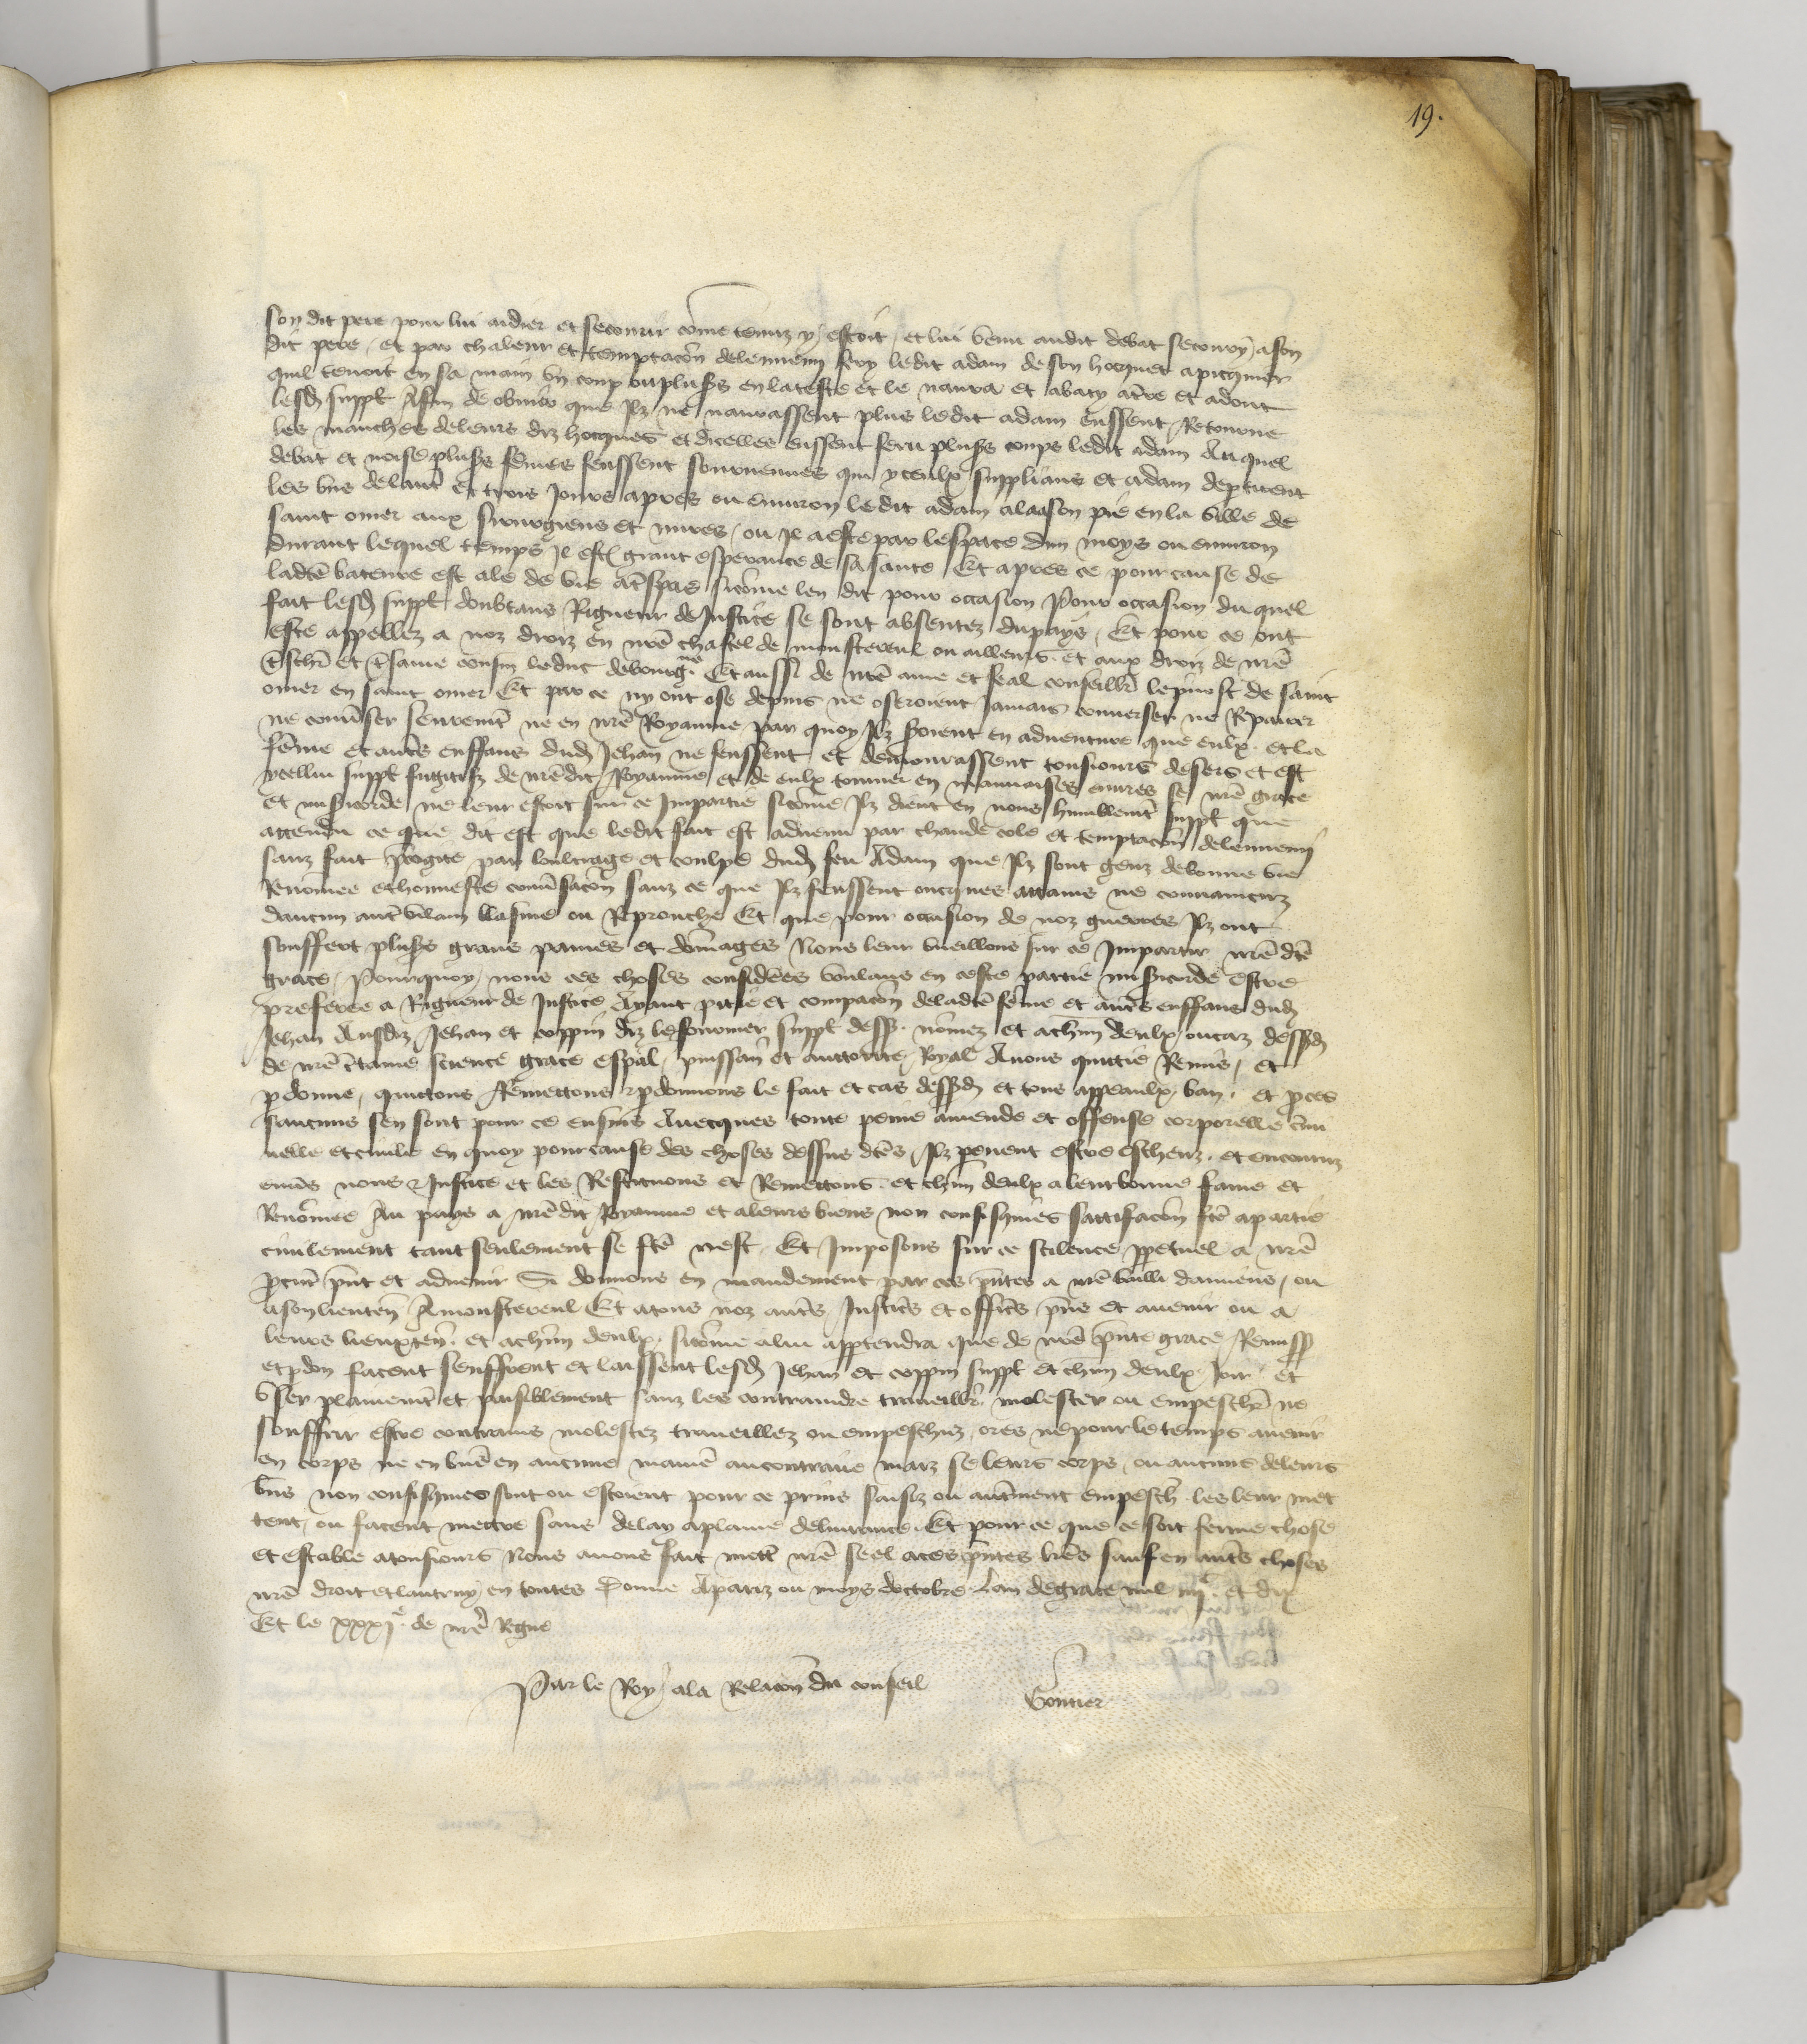 19.
son dit pere pour lui aidier et secourir cōme tenuz y estoit, et lui venu audit debat secoury a son
dit pere, et par chaleur et temptacōn delennemi fery ledit adam de son hocquet a picquier
quil tenoit en sa main un coup ou plus̄s en la teste et le navra et abaty a t̄re et adont
lesd suppl̄ Afin de obvier que Ilz ne navrassent plus ledit adam eussent Retourné
les manches de leurs diz hocques et dicelles eussent feru plus̄s coups ledit adam Auquel
debat et noise plus̄s fēmes feussent sourvenues qui yceulx supplians et adam dep̄tirent
les uns delaut̄ Et trois Jours apres ou environ ledit adam ala a son pié en la ville de
saint omer aux sirurgiens et mires, ou Il a esté par lespace dun moys ou environ
durant lequel temps Il est grant esperance de sa santé Et apres ce pour cause de
ladt̄e bateure est alé de vie a t̄spas sicōme len dit pour occasion Pour occasion du quel
fait lesd suppl̄ doubtans Rigueur de Justice se sont absentez du pays, Et pour ce ont
esté appellez a noz droiz en nr̄e chastel de monstereul ou ailleurs et aux droiz de nr̄e
t̄schr̄ et t̄samé cousin le duc de bourgne Et aussi de nr̄e amé et feal conseillr̄ le p̄vost de saint
omer en saint omer Et par ce ny ont osé depuis ne oseroient Jamais converser ne Repairer
ne conv̄ser seuremt̄ ne en nr̄e Royaume par quoy Ilz soient en adventure que eulx et la
fēme et aut̄s enffans dud Jehan ne feussent et demourassent tousiours desers et est
ycellui suppl̄ fugitifz de nr̄edit Royaume et de eulx tourner en mauvaises euvres se nr̄e grace
et mis̄icorde ne leur estoit sur ce Impartie sicōme Ilz dient en nous humblemt̄ suppl̄ que
attendu ce que dit est que ledit fait est advenu par chaude cole et temptacōn delennemi
sanz fait p̄cogité par loultrage et coulpe dud feu Adam que Ilz sont genz de bonne vie
Renōmee et honneste conv̄sacōn sanz ce que Ilz feussent oncques attains ne convaincuz
daucun aut̄ vilain blasme ou Reprouche Et que pour occasion de noz guerres Ilz ont
souffert plus̄s grans paines et dōmages Nous leur vueillons sur ce Impartir nr̄e dt̄e
grace, Pourquoy, nous ces choses considēes voulans en ceste partie mis̄icorde estre
preferee a Rigueur de Justice Ayant pitié et compacōn de ladt̄e fēme et aut̄s enffans dud
Jehan Ausdiz Jehan et coppin diz le fournier suppl̄ dess̄ nōmez et a chūn deulx ou cas dessd
de nr̄e c̄taine science grace esp̄al, puissan̄ et auctorité Royal Avons quittié Remis, et
p̄donné, quittons Remettons et p̄donnons le fait et cas dessd et tous appeaulx, ban, et p̄ces
saucuns sen sont pour ce ensuis Avecques toute peine amende et offense corporelle c̄mi
nelle et civile en quoy pour cause des choses dessus dt̄es Ilz pevent estre escheuz, et encouruz
env̄s nous et Justice et les Restituons et Remettons et chūn deulx a leur bonne fame et
Renōmee Au pays a nr̄edit Royaume et a leurs biens non confisquiés sattiffacōn ft̄e a partie
civilement tant seulement se ft̄e nest, Et Imposons sur ce scilence pp̄etuel a nr̄e
p̄cur̄ p̄nt et advenir Si donnons en mandement par ces p̄ntes a nr̄e bailli damiens, ou
a son lieuten̄ A monstereul Et a tous noz aut̄s Justic̄s et offic̄s p̄ns et avenir ou a
leurs lieuxten̄ et a chūn deulx sicōme a lui app̄tendra que de nr̄e p̄nte grace Remiss̄
et p̄don facent seuffrent et laissent lesd Jehan et coppin suppl̄ et chūn deulx Joir et
user plainemt̄ et paisiblement sanz les contraindre travaillr̄ molester ou empeschr̄ ne
souffrir estre contrains molestez travaillez ou empeschiez, ores ne pour le temps avenir
en corps ne en biēs en aucune manieē au contraire maiz se leurs corps, ou aucuns de leurs
biēs non confisquiés sont ou estoient pour ce prins saisiz ou aut̄ment empesch̄ les leur met
tent, ou facent mettre sans delay a plaine delivrance, Et pour ce que ce soit ferme chose
et estable a tousiours Nous avons fait mett̄ nr̄e seel a ces p̄ntes lr̄es sauf en aut̄s choses
nr̄e droit et lautruy en toutes Donné A pariz ou moys doctobre Lan de grace mil iiijc et dix
Et le xxxje de nr̄e Regne
Par le Roy a la Relacōn du conseil Gontier